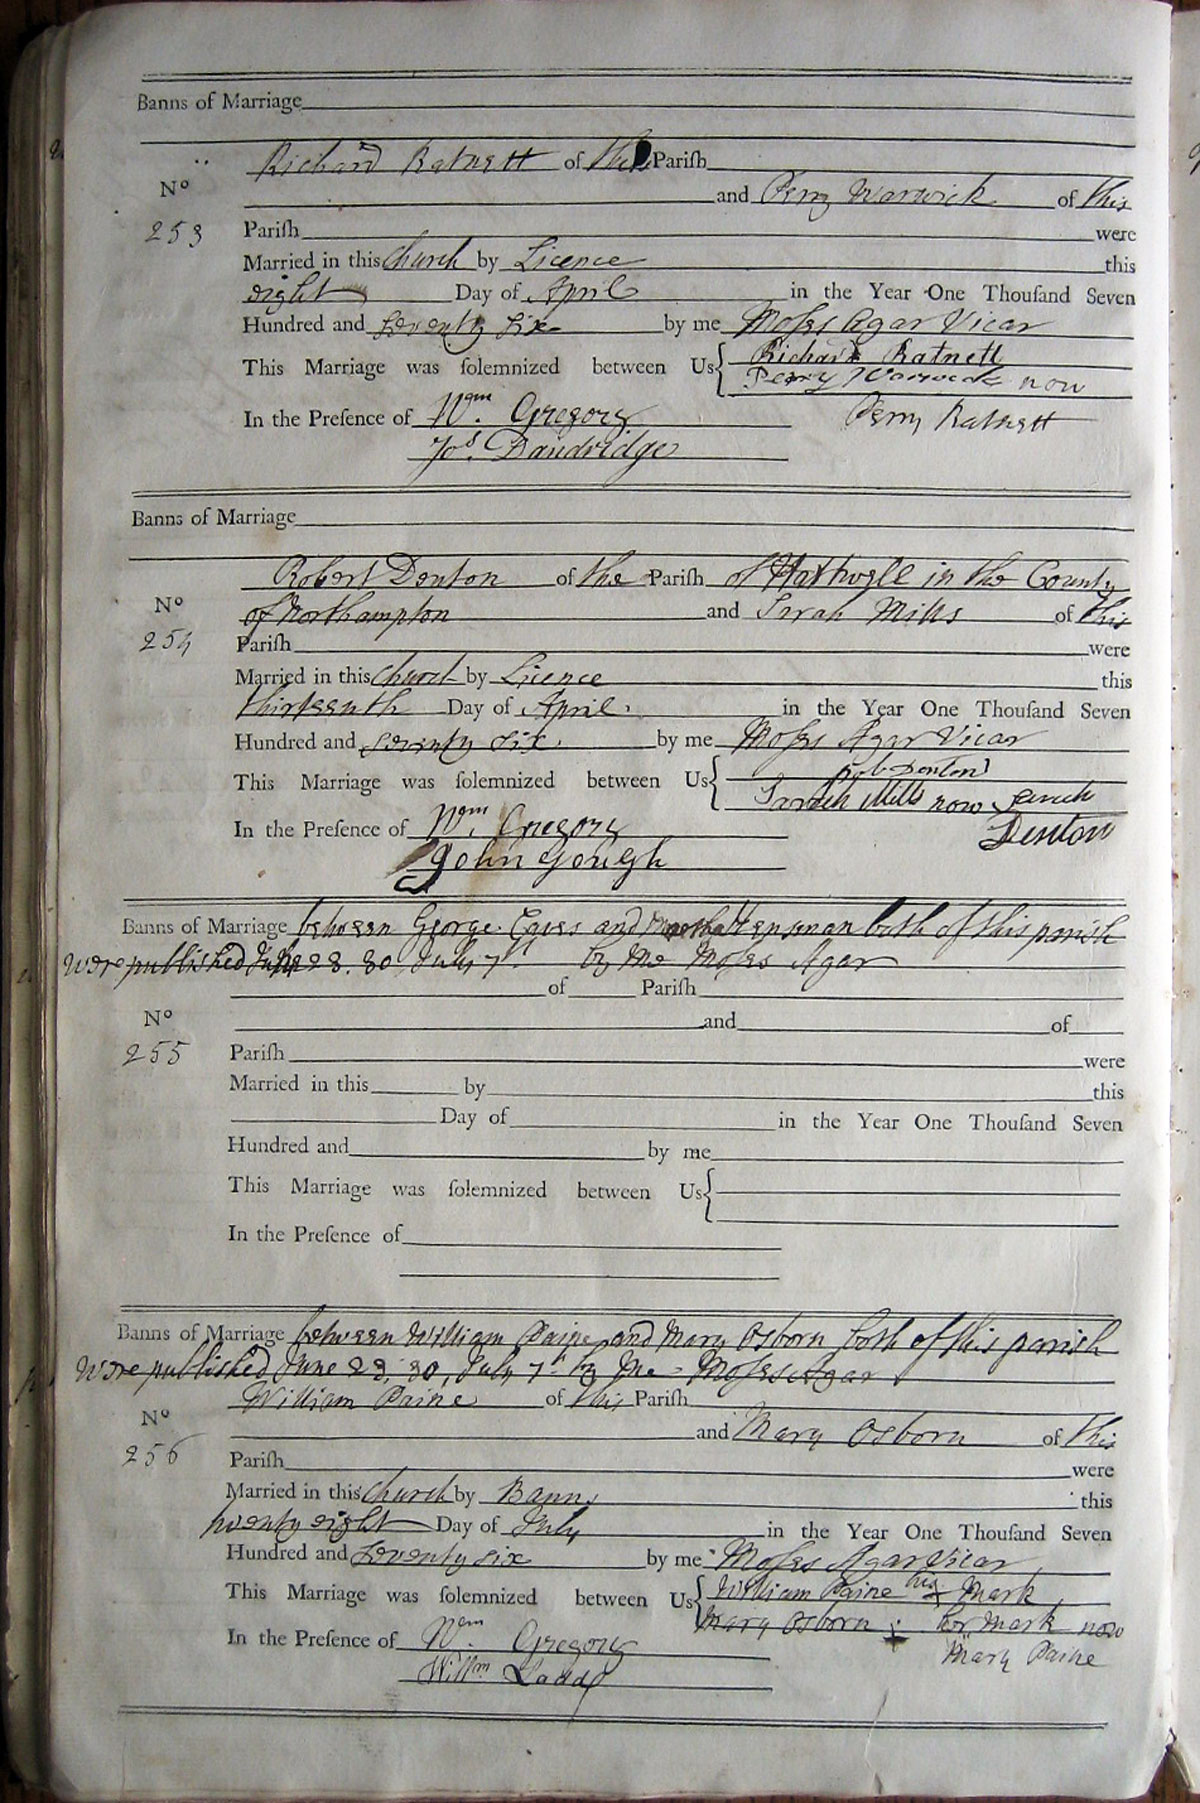 Banns of Marriage
Richard Ratnett of this Parish
Nº
and Perry Warwick of this
253 Parish were
Married in this Church by Licence this
eight Day of April in the Year One Thouſand Seven
Hundred and Seventy Six by me Moses Agar Vicar
This Marriage was ſolemnized between Us Richard Ratnett
Perry Warwick now
In the Preſence of Wm. Gregory Perry Ratnett
Jos. Dandridge
Banns of Marriage
Robert Denton of the Parish of Hathwell in the County
Nº of Northampton and Sarah Mills of this
254 Parish were
Married in this Church by Licence this
thirteenth Day of April in the Year One Thouſand Seven
Hundred and Seventy Six by me Moses Agar Vicar
This Marriage was ſolemnized between Us Rob Denton
Sarah Mills now Sarah
In the Preſence of Wm. Gregory Denton
John Gough
Banns of Marriage between George Eaves and Hensman both of this parish
were published June 23. 30, July 7th by me Moses Agar
of Pariſh
Nº and of
255 Pariſh were
Married in this by this
Day of in the Year One Thouſand Seven
Hundred and by me
This Marriage was ſolemnized between Us
In the Preſence of
Banns of Marriage between William Paine and Mary Osborn both of this parish
were published June 23, 30, July 7th by me Moses Agar
William Paine of this Pariſh
Nº
and Mary Osborn of this
256 Pariſh were
Married in this Church by Banns this
twenty eight Day of July in the Year One Thouſand Seven
Hundred and Seventy six by me Moses Agar Vicar
This Marriage was ſolemnized between Us William Paine his x Mark
Mary Osborn + her Mark now
In the Preſence of Wm. Gregory Mary Paine
Willm Ladd